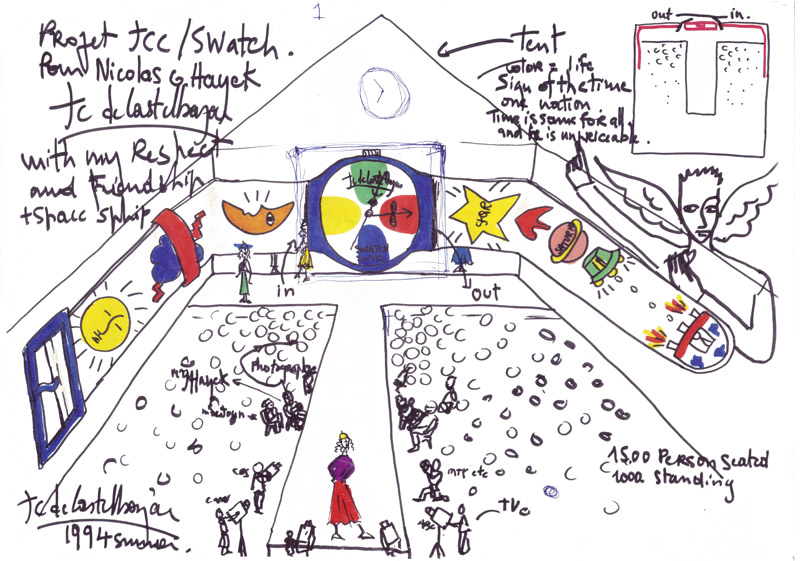 1
Projet JCC/SWatch.
Pour Nicolas G. Hayek
JC de Castelbajac
with my Respect
and Friendship
+ Space Ship
Tent
color = life
Sign of the time
one nation
Time is same for all
and he is
out
in.
Star
SATURN
SWATCH
in
out
Photographs
Hayek
CBS
CNN
MTV etc
TV
1500 Person Seated
1000 Standing
JC de Castelbajac
1994 summer.